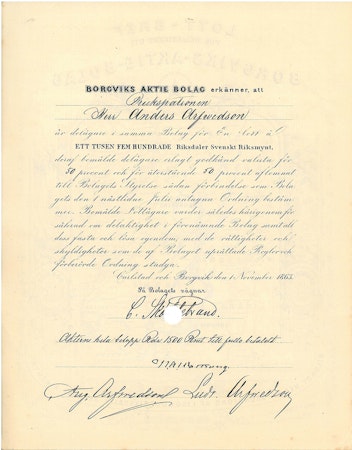 BORGVIKS AKTIE BOLAG erkänner, att
Brukspatronen
Herr Anders Arfvedson
är delägare i samma Bolag för En lott à
ETT TUSEN FEM HUNDRADE Riksdaler Svenskt Riksmynt,
deraf bemälde delägare erlagt godkänd valuta för
50 procent och för återstående 50 procent aflemnat
till Bolagets Styrelse sådan förbindelse som Bola-
gets den 1 nästlidne Julii antagna Ordning bestäm-
mer. Bemälde Lottägare varder således härigenom för-
säkrad om delaktighet i förenämnde Bolag samt all
dess fasta och lösa egendom, med de rättigheter och
skyldigheter som de af Bolaget upprättade Regler och
förbörde Ordning stadga.
Carlstad och Borgvik den 1 November 1863.
På Bolagets vägnar
C.
Aktiens hela belopp Rdr 1500 Rmt till fullo betaldt.
Aug. Arfvedson Ludv. Arfvedson